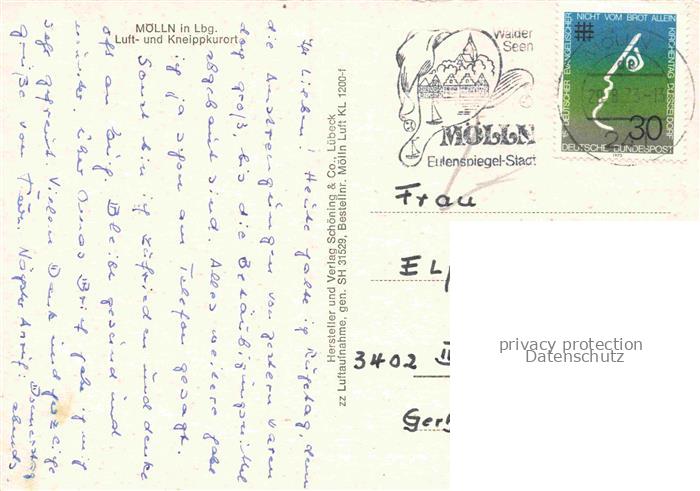 MÖLLN in Lbg.
Luft- und Kneippkurort
Ihr Lieben! Heute halte ich Ruhetag, denn
die Anstrengungen von gestern waren
doch groß, bis die Betäubungsmittel
abgebaut sind. Alles weitere habe
ich ja schon am Telefon gesagt.
Sonst bin ich zufrieden und denke
oft an Euch. Bleibt gesund und
munter. Über Brief habe ich mich
sehr gefreut. Vielen Dank und herzliche
Grüße von
Donnerstag
abends.
Hersteller und Verlag Schöning & Co., Lübeck
zz Luftaufnahme, gen. SH 31529, Bestellnr. Mölln Luft KL 1200-f
Wälder
Seen
MÖLLN
Eulenspiegel-Stadt
DEUTSCHER EVANGELISCHER KIRCHENTAG DÜSSELDORF
NICHT VOM BROT ALLEIN
30
DEUTSCHE BUNDESPOST
1973
Frau
3402
privacy protection
Datenschutz